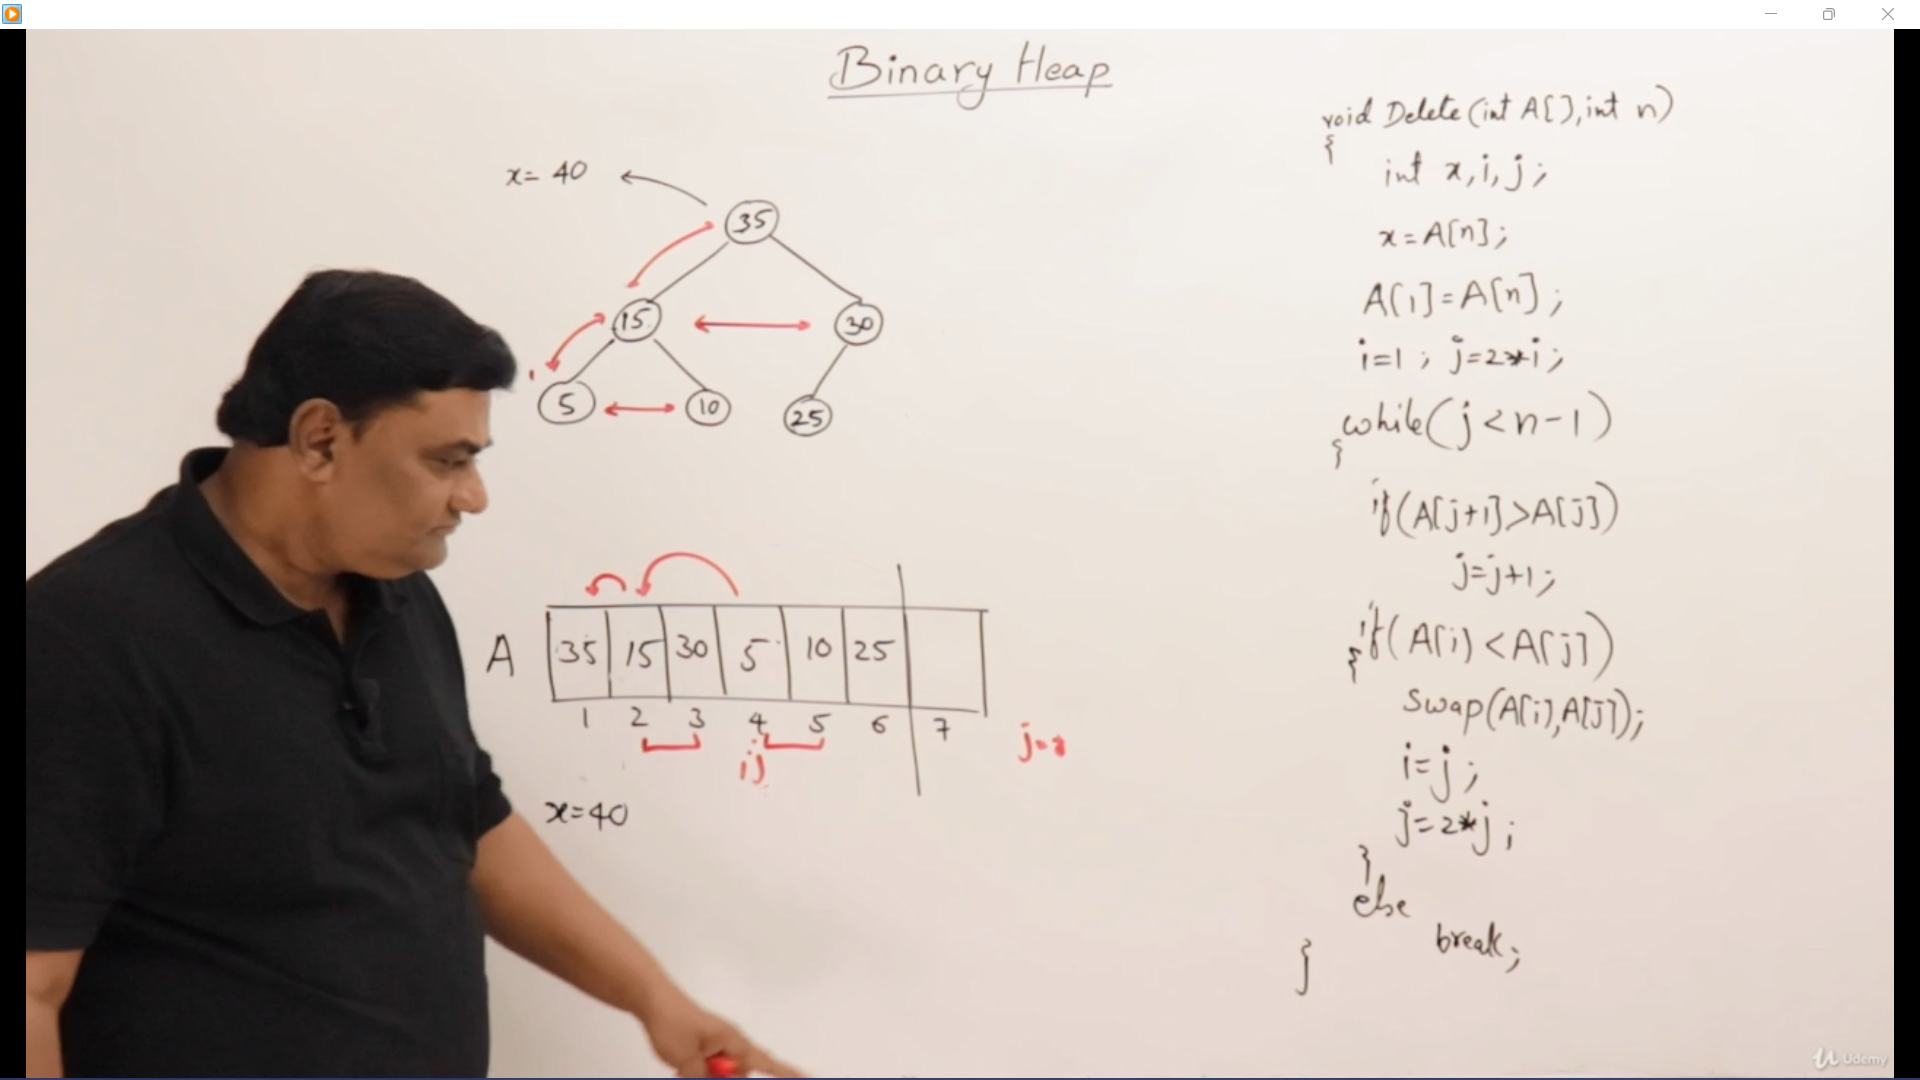 Binary Heap
x= 40
35
15
30
5
10
25
A
35 15 30 5 10 25
1 2 3 4 5 6 7
i j
x=40
void Delete(int A[], int n)
{
int x, i, j;
x=A[n];
A[1]=A[n];
i=1; j=2*i;
while(j<n-1)
{
if(A[j+1]>A[j])
j=j+1;
if(A[i]<A[j])
{
Swap(A[i],A[j]);
i=j;
j=2*j;
}
else
break;
}
Udemy